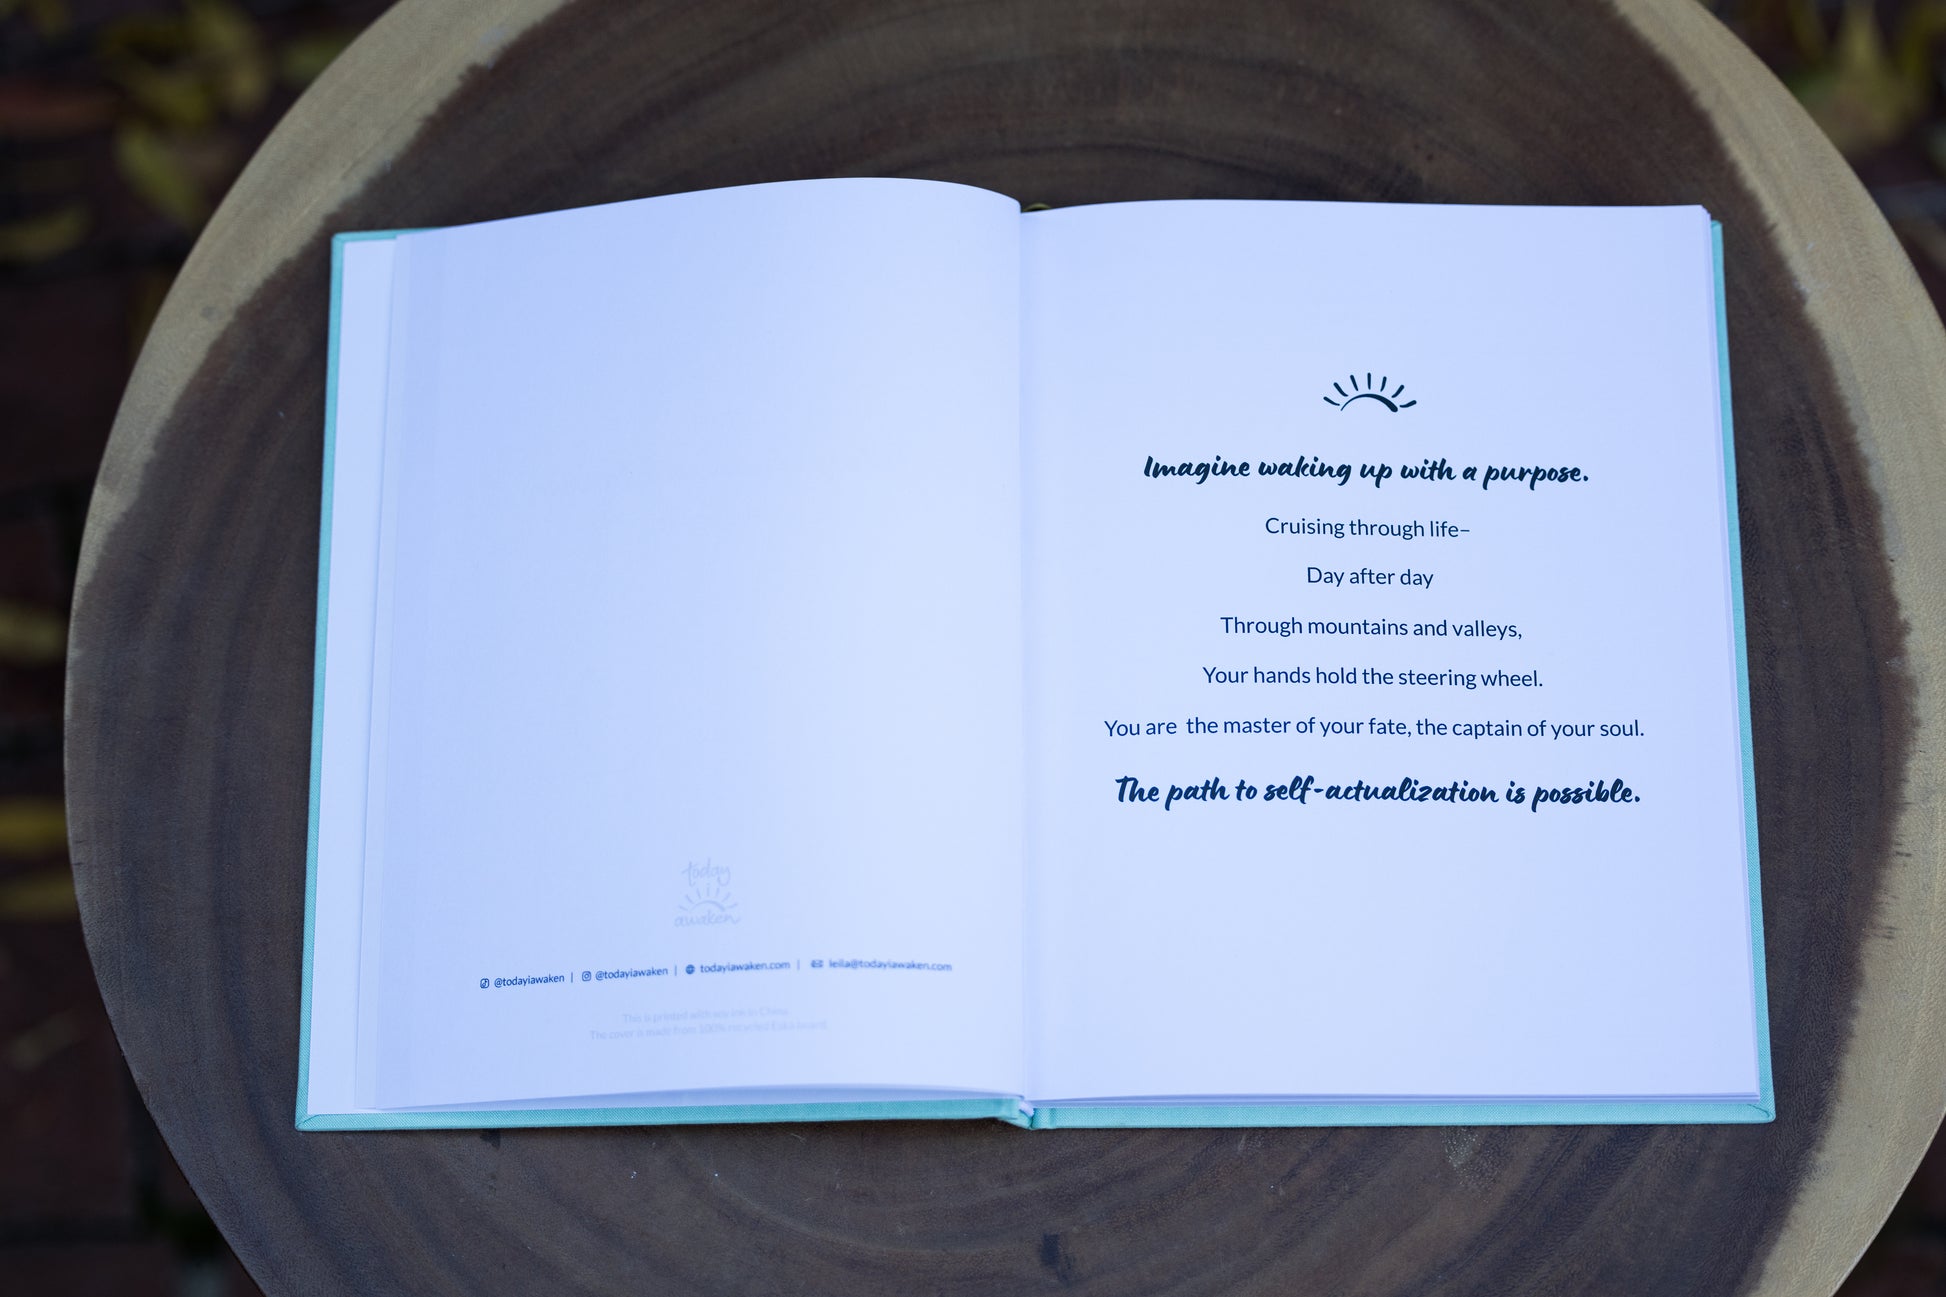 today
i
awaken
@todayiawaken | @todayiawaken | todayiawaken.com | leila@todayiawaken.com
This is printed with soy ink in China.
The cover is made from 100% recycled Eska board.
Imagine waking up with a purpose.
Cruising through life–
Day after day
Through mountains and valleys,
Your hands hold the steering wheel.
You are the master of your fate, the captain of your soul.
The path to self-actualization is possible.